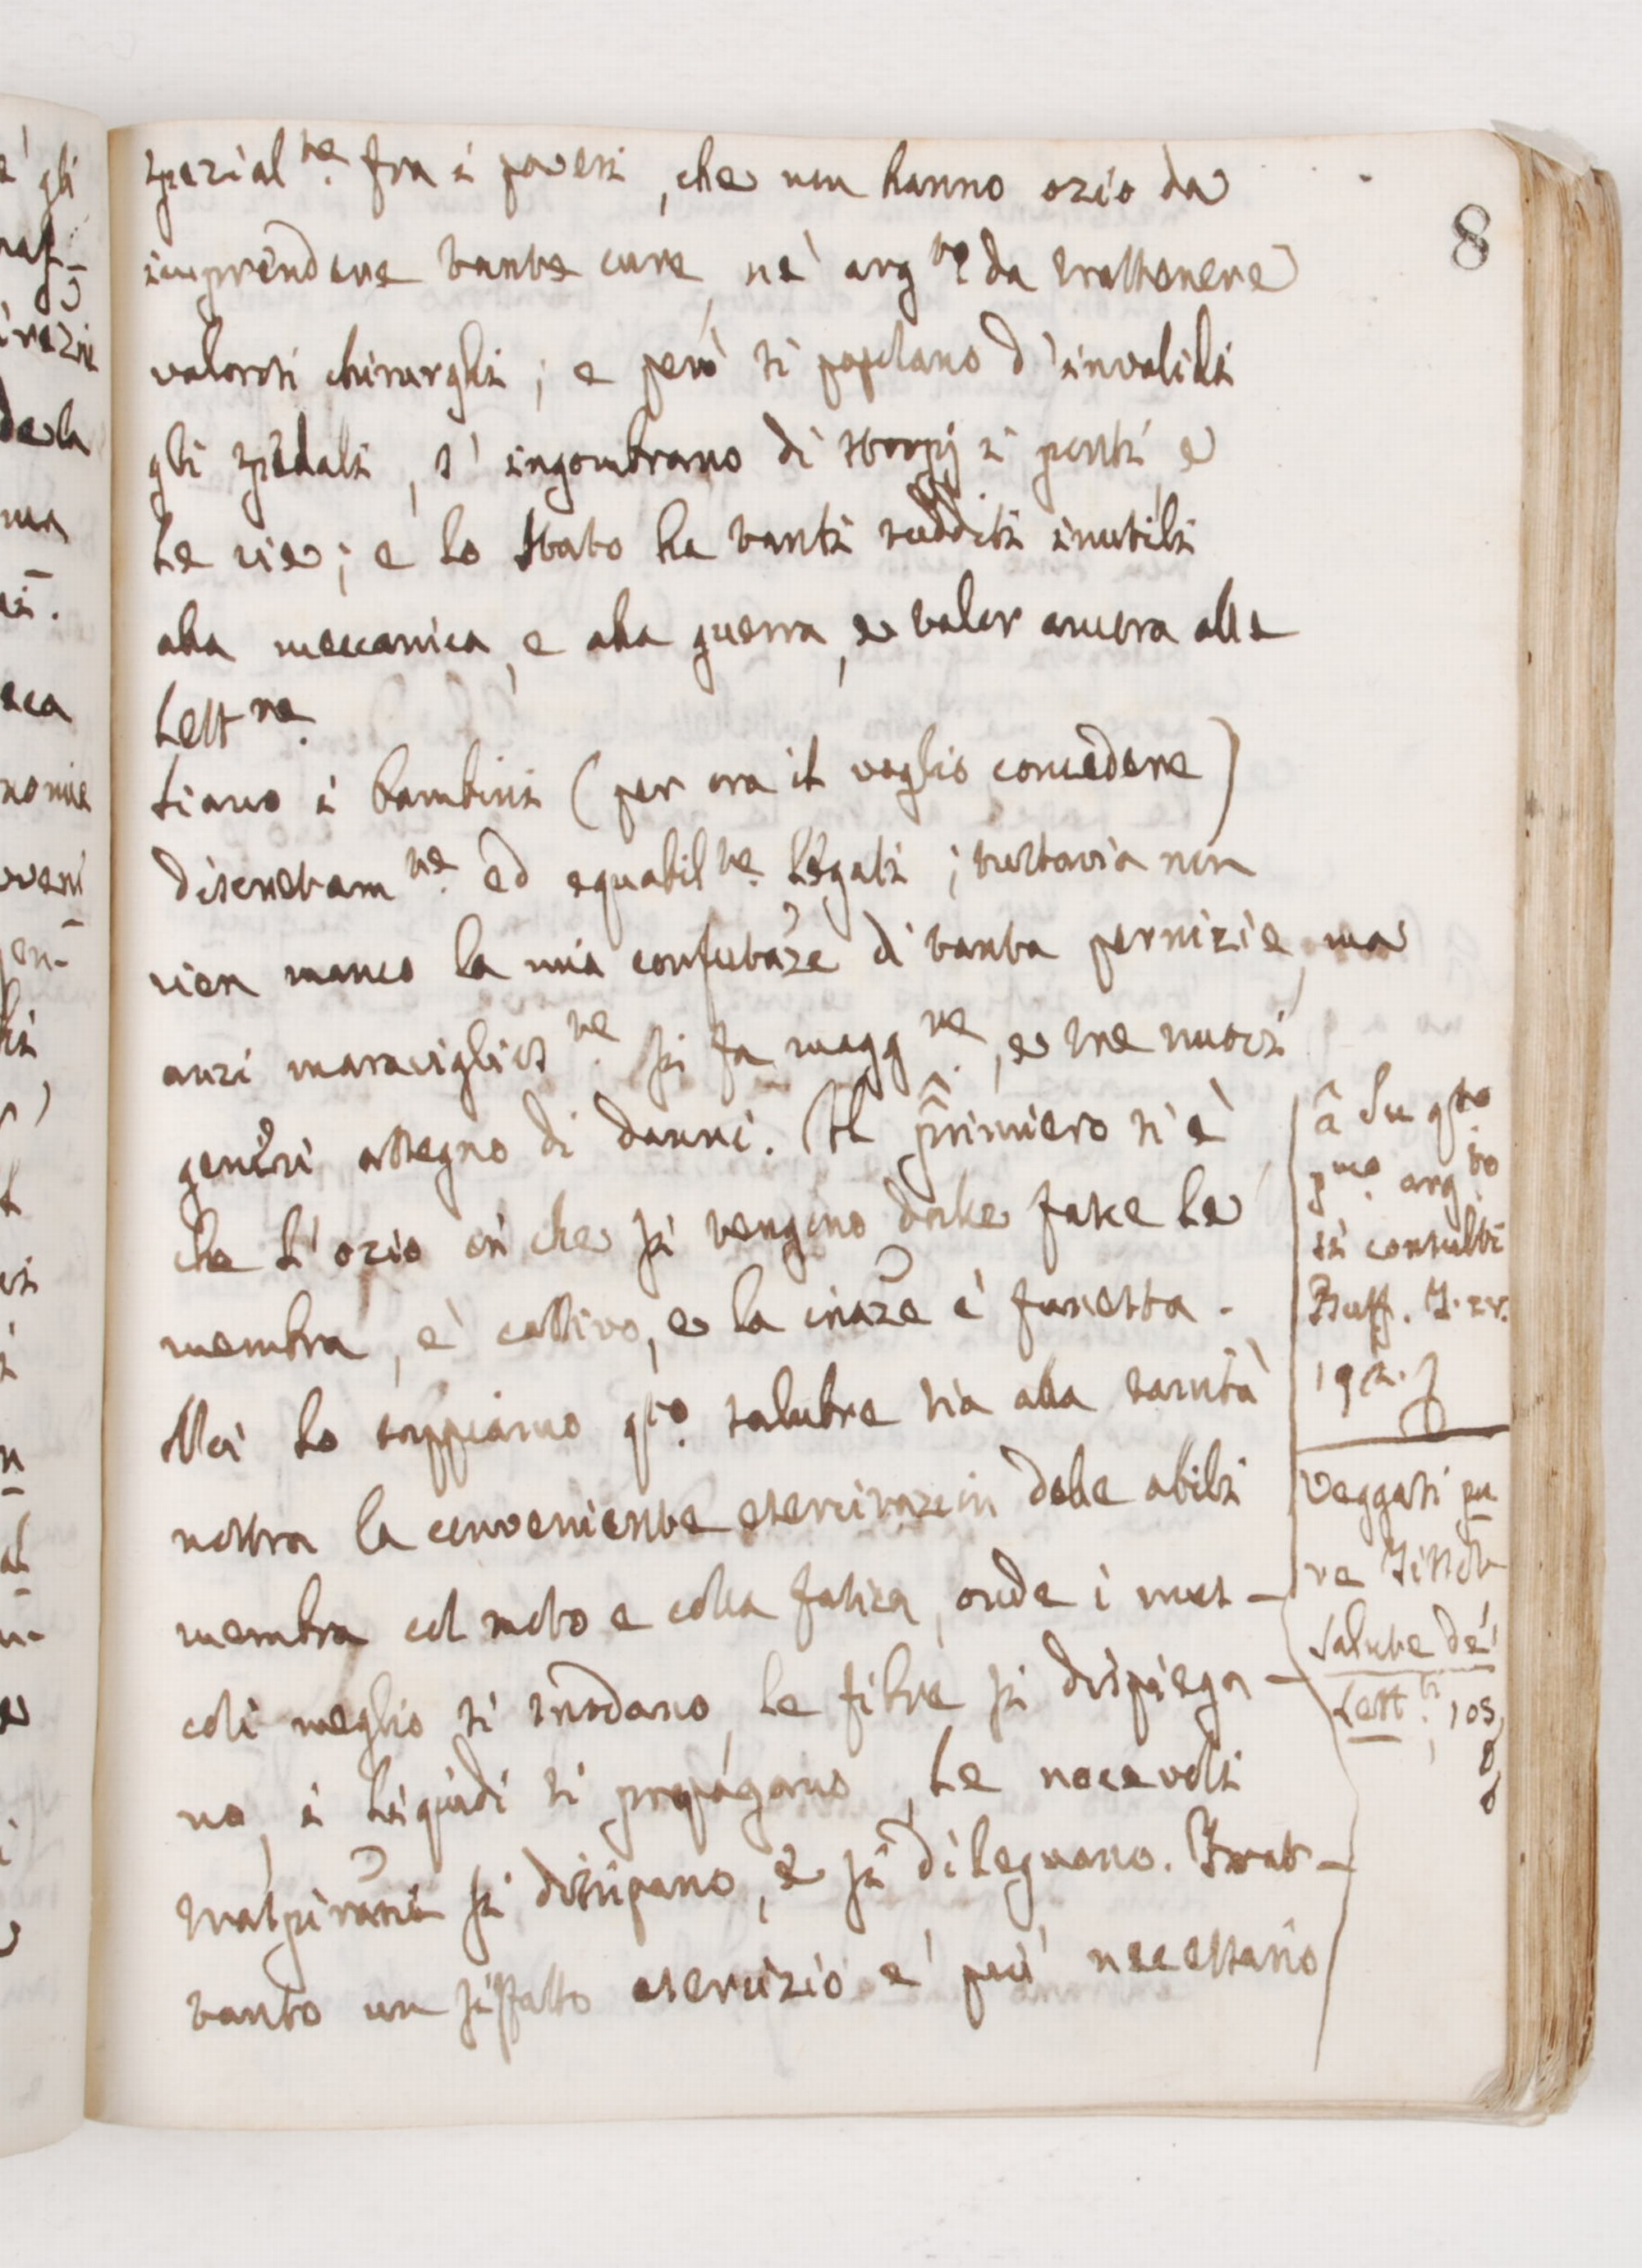 8
spezial.te fra i poveri, che non hanno ozio da
imprendere tante cure, nè arg.to da trattenere
valorosi chirurghi; e però si popolano d'invalidi
gli spedali, s'ingombrano di storpj i ponti e
le vie; e lo stato ha tanti sudditi inutili
alla meccanica, e alla guerra, e talor ancora alle
Lett.re
Siano i bambini (per ora il voglio concedere)
discretam.te ed equabil.te legati; tuttavia non
vien manco la mia confutaze di tanta pernizie, ma
anzi maraviglios.te si fa magg.re, e tre nuovi
generi assegno di danni. Il primiero si è
che l'ozio in che si tengono dalle fasce le
membra, è cattivo, e la inaze è funesta.
Noi lo sappiamo q.to salubre sia alla sanità
nostra la conveniente esercitazion delle abili
membra col moto e colla fatica, onde i mus-
coli meglio si snodano, le fibre si dispiega-
no, i liquidi si propagano, le nocevoli
traspirazni si dissipano, e si dileguano. Trat-
tanto un sìffatto esercizio è più necessario
â Su q.to
p.mo arg.to
si consulti
Buff. T. IV.
192.
Veggasi pu
re Tissot
Salute de'
Lett.ti, 103